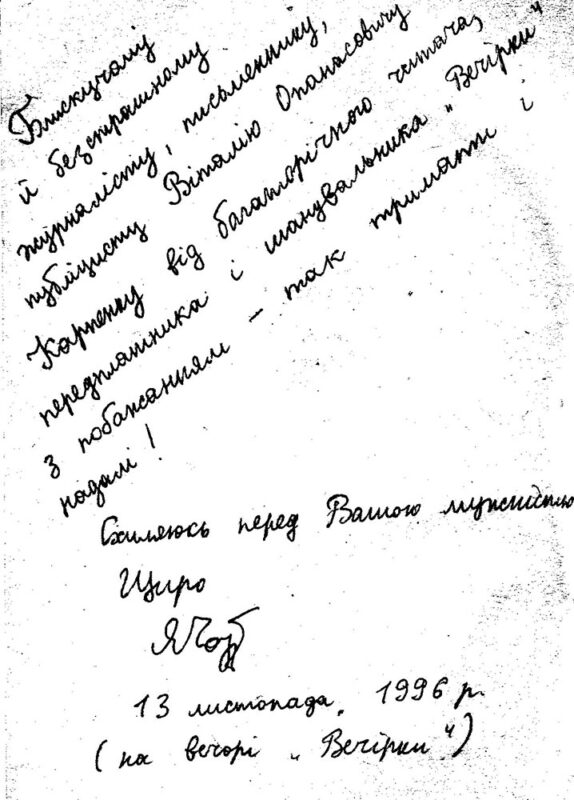 Блискучому
й безстрашному
журналісту, письменнику,
публіцисту Віталію Опанасовичу
Карпенку від багаторічного читача,
передплатника і шанувальника „Вечірки"
з побажанням – так тримати і
надалі!
Схиляюсь перед Вашою мужністю
Щиро
13 листопада, 1996 р.
(на вечорі „Вечірки")